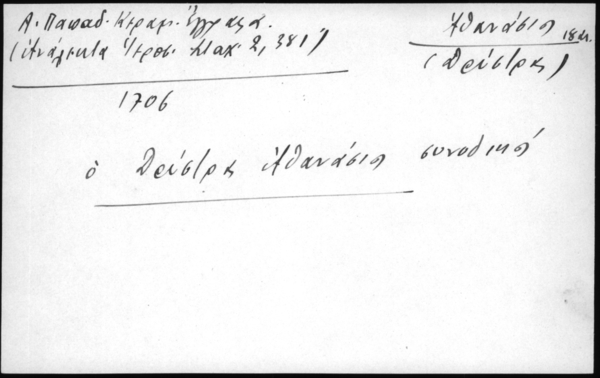 Α. Παπαδ. Κεραμ. Έγγραφα.
(Ἀνάλεκτα Ἱεροσ. Σταχ. 2, 381)
Ἀθανάσιος 18 αι.
(Δρίστρας)
1706
ὁ Δρίστρας Ἀθανάσιος συνοδικό